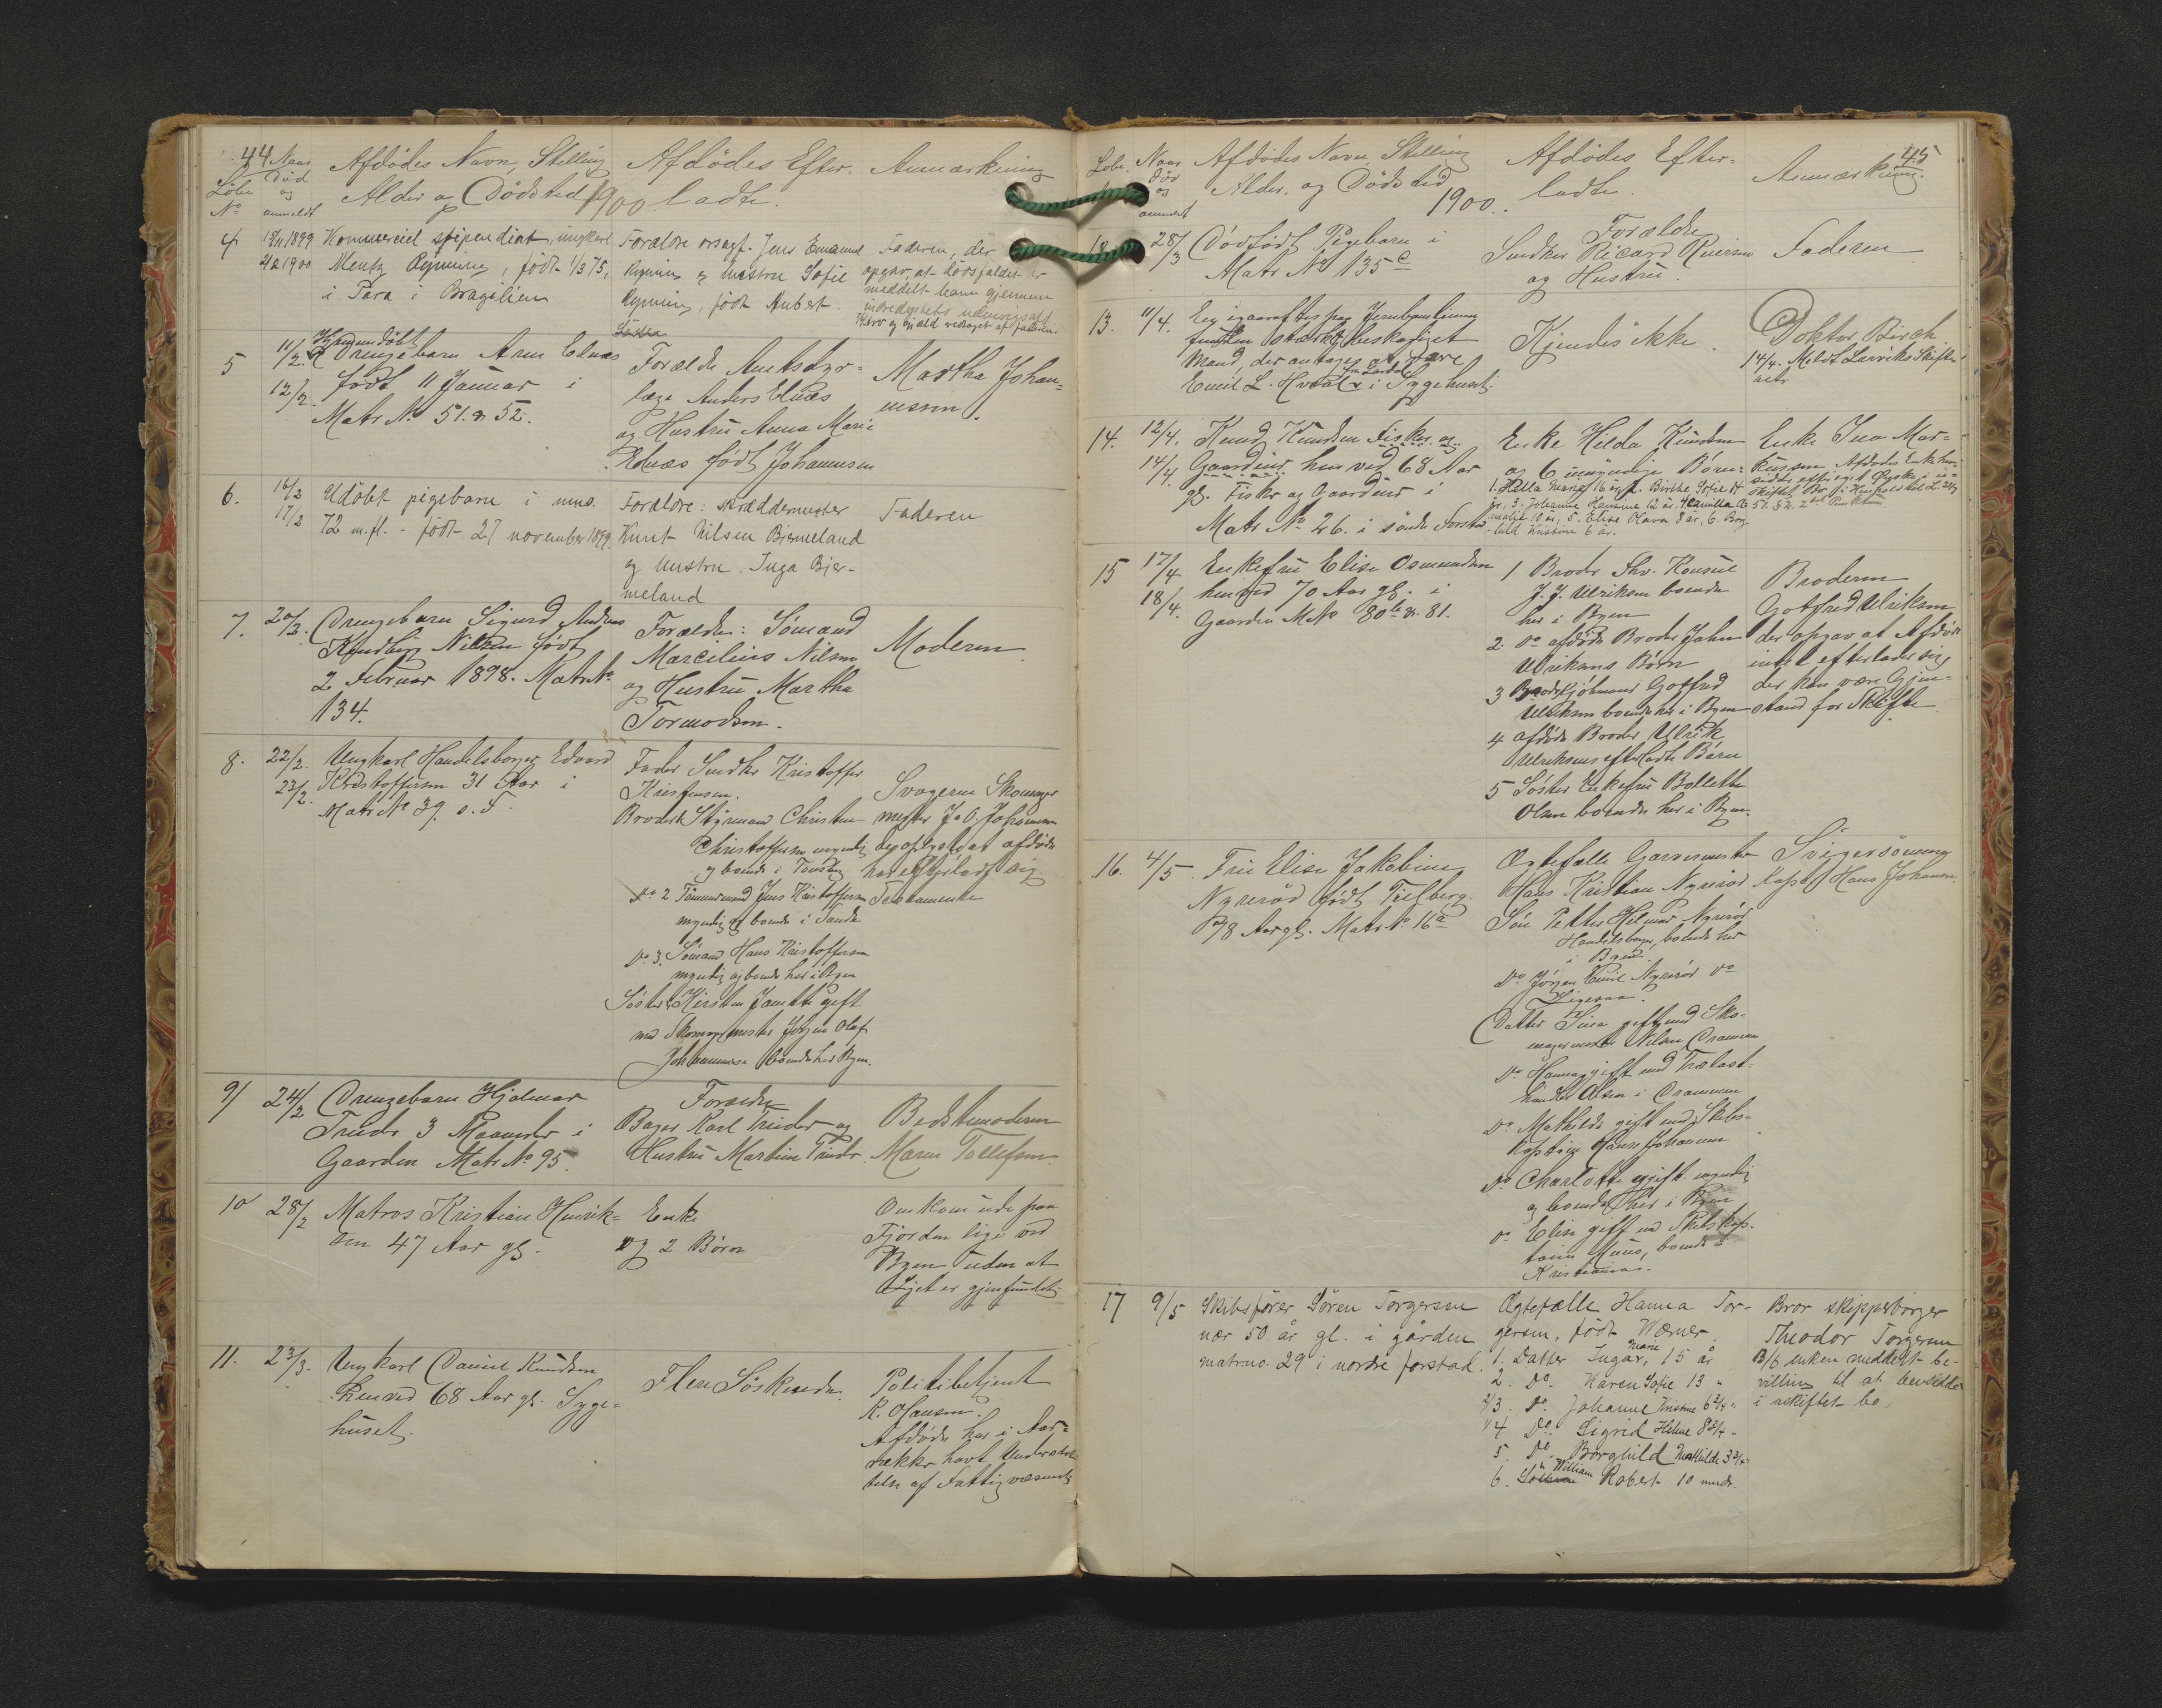 44
Løbe
No
Naar
Død
og
anmeldt
Afdødes Navn, Stilling
Alder og Dødsted
1900
Afdødes Efter-
ladte.
Anmærkning
4
15/11 1899
2/2 1900
Kommerciel stipendiat, ungkarl
Mentz Rynning, født 1/3 75,
i Para i Bragilien
Forældre orsagf. Jens Emanuel
Rynning og hustru Sofie
Rynning, født Aubert.
Faderen, der
opgav, at dødsfaldet er
meddelt ham gjennem
indredepartets
og gjæld vedtaget af faderen.
5
11/2.
12/2.
Hjemmedøbt
Drengebarn Arne Elnæs
født 11 Januar i
Matr No 51. & 52.
Forældre Amtsdyr-
læge Anders Elnæs
og Hustru Anna Marie
Elnæs født Johannesen
Martha Johan-
nessen.
6.
16/2
17/2
Udøbt pigebarn i mno.
72 m.fl. - født 27 november 1899.
Forældre: skræddermester
Knut Nilsen Bjermeland
og hustru Inga Bjer-
meland
Faderen
7.
20/2.
Drengebarn Sigurd Andreas
Nilsen født
2 Februar 1898. Matr No
134.
Forældre: Sømand
Marcilius Nilsen
og Hustru Martha
Tormodsen.
Moderen
8.
22/2.
23/2.
Ungkarl Handelsborger Edvard
Kristoffersen 31 Aar i
Matr No 39 s. F.
Fader Snedker Kristoffer
Kristensen.
Broder 1 Styrmand Christen
Christoffersen myndig
og boende i Tønsberg
Do 2 Tømmermand Jens Kristoffersen
myndig og boende i Sande
Do 3. Sømand Hans Kristoffersen
myndig og boende her i Byen
Søster Kirsten Janette gift
med Skomagermester Jørgen Olaf
Johannessen boende her Byen.
Svogeren Skomager
mester J. O. Johannesen
der opgav at afdøde
har efterladt sig
Testamente
9/
24/2
Drengebarn Hjalmar
Trude 3 Maaneder i
Gaarden Matr No 95.
Forældre
Bager Karl Trude og
Hustru Martine Trude
Bedstemoderen
Maren Tollefsen
10
28/2
Matros Kristian Henrik-
sen 47 Aar gl.
Enke
og 2 Børn
Omkom ude paa
Fjorden lige ved
Byen uden at
Liget er gjenfundet.
11.
23/3.
Ungkarl Daniel Knudsen
henved 68 Aar gl. Syge-
huset.
Flere Søskende
Politibetjent
K. Hansen.
Afdøde har i Aar-
rækker havt Understøt-
telse af Fattigvæsenet
45
Løbe
Naar
død
og
anmeldt
Afdødes Navn, Stilling
Alder. og Dødsted
1900.
Afdødes Efter-
ladte.
Anmærkning.
28/3
Dødfødt Pigebarn i
Matr No 135 c
Forældre
Snedker Ricard Iversen
og Hustru.
Faderen
13.
11/4.
En igaaraftes paa Jernbanelinien
funden stærkt beskadiget
Mand, der antages at være
Emil L. Hvaal fra Lardal i Sygehuset.
Kjendes ikke.
Doktor Birch.
14/4. Meldt Larviks Skifte-
ret
14.
12/4.
14/4.
Knud Knudsen Fisker og
Gaardeier henved 68 Aar
gl. Fisker og Gaardeier i
Matr No 26. i søndre Forstad
Enke Helda Knudsen
og 6 umyndige Børn:
1. Hella Marie 16 år, 2. Birthe Sofie 14
år, 3. Johanne Hansine 12 år, 4 Kamilla
Amalie 10 år, 5. Elise Olava 8 år, 6. Borg-
hild Kristine 6 år.
Enke Ina Mar-
kussen. Afdødes Enke hen-
sidder efter eget Ønske i u-
skiftet Bo i Henhold til L 31/7
51 § 2. 2det Punktum.
15
17/4
18/4.
Enkefru Elise Osmundsen
henved 70 Aar gl. i
Gaarden MNo 80 b & 81.
1 Broder Fhv. Konsul
J. J. Ulriksen boende
her i Byen
2. Do afdøde Broder Johan
Ulriksens Børn
3 Broder Kjøbmand Gotfred
Ulriksen boende her i Byen
4 afdøde Broder Ulrik
Ulriksens efterladte Børn
5 Søster Enkefru Bollette
Olsen boende her i Byen.
Broderen
Gotfred Ulriksen
der opgav at Afdøde
intet efterlader sig
der kan være Gjen-
stand for Skifte
16.
4/5.
Fru Elise Jakobine
Nyrerød født Fuelberg.
78 Aar gl. Matr No 16 a
Ægtefælle Garvermester
Hans Kristian Nyrerød
Søn Petter Hilmar Nyrerød
Handelsborger, boende her
i Byen.
Do Jørgen Emil Nyrerød Do
Ligesaa.
Datter Lina gift med Sko-
magermester Nilsen Drammen
Do Hanna gift med Trælast-
handler Olsen i Drammen
Do Mathilde gift med Skibs-
kaptein Hans Johansen
Do Charlotte ugift myndig
og boende her i Byen
Do Elise gift med Skibskap-
tein Muus, boende i
Kristiania.
Svigersønnen
Kapt. Hans Johansen.
17
9/5
Skibsfører Søren Torgersen
nær 50 år gl. i gården
matrno. 29 i nordre forstad.
Ægtefælle Hanna Tor-
gersen, født Werner.
1. Datter Ingar Marie, 15 år
2. Do. Karen Sofie 13 "
2/3. Do. Johanne Kristine 6 3/4 "
4 Do. Sigrid Helene 8 3/4 "
5. Do. Borghild Mathilde 3 3/4 "
6. Søn William Robert 10 mndr.
Bror skipperborger
Theodor Torgersen
13/6 enken meddelt be-
villing til at hensidde
i uskiftet bo.